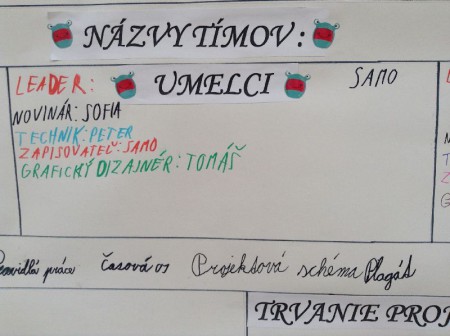 NÁZVY TÍMOV:
LEADER: UMELCI SAMO
NOVINÁR: SOFIA
TECHNIK: PETER
ZAPISOVATEĽ: SAMO
GRAFICKÝ DIZAJNÉR: TOMÁŠ
práce Časová os Projektová schéma Plagát
TRVANIE PROJ